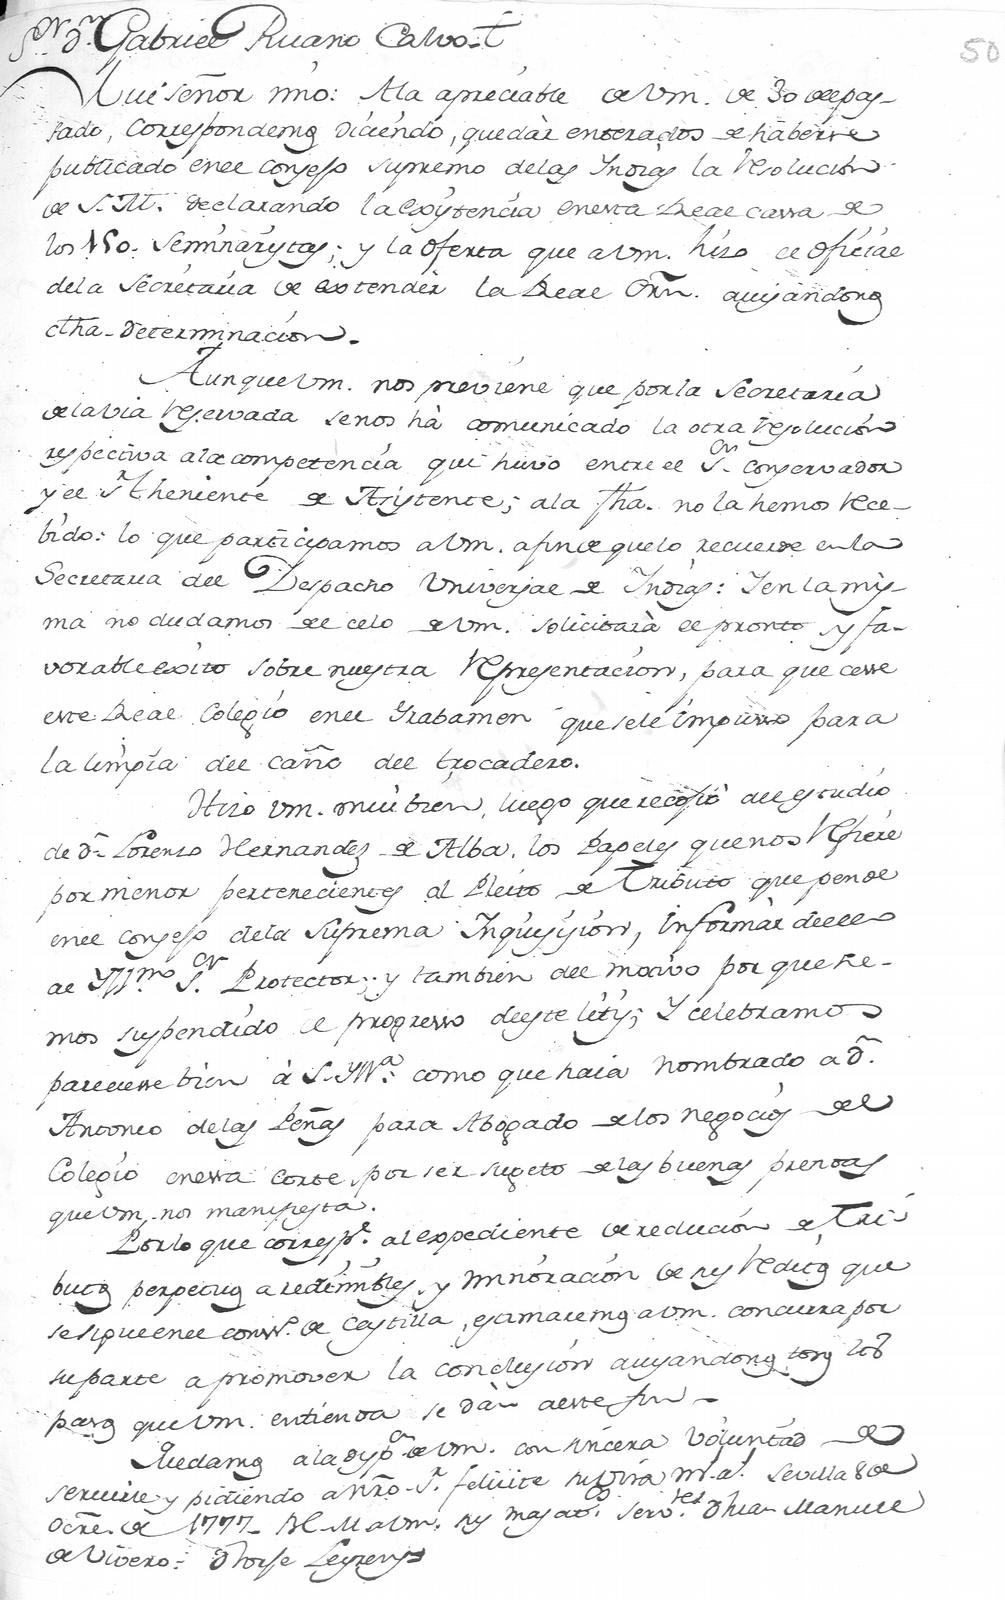 Sor. Dn. Gabriel Ruano Calvo
50
Mui señor mio: A la apreciable de Vm. de 30 de pas-
sado, Correspondemos diciendo, quedàr enterados de haberse
publicado en el Consejo Supremo delas Indias la Resolucion
de S. M. declarando la existencia en esta Real cassa de
los 150. Seminaristas; y la oferta que a Vm. hizo el oficial
dela Secretaria de extendèr la Real Orn. avisandonos
dha. determinacion.
Aunque Vm. nos previene que por la Secretaria
dela via reservada se nos hà comunicado la otra resolucion
respectiva ala competencia que huvo entre el Sor. Conservador
y el Sr. Theniente de Asistente; ala fha. no la hemos rece-
bido: lo que participamos a Vm. afin de que lo recuerde en la
Secretaria del Despacho Universal de Indias: Y en la mis-
ma no dudamos de el celo de Vm. solicitarà el pronto y fa-
vorable exito sobre nuestra Representacion, para que cesse
este Real Colegio en el Grabamen que se le impuso para
la limpia del caño del trocadero.
Hizo Vm. mui bien, luego que recogiò del estudio
de Dn. Lorenzo Hernandez de Alba, los Papeles que nos refiere
por menor pertenecientes al Pleito de Tributo que pende
en el Consejo dela Suprema Inquisicion, informàr de ello
al Yllmo. Sor. Protector; y tambien del motivo por que he-
mos suspendido el progresso de este litis; Y celebramos
pareciesse bien à S. Yllma. como que haia nombrado a Dn.
Antonio delas Peñas para Abogado de los negocios del
Colegio en essa Corte por ser sugeto de las buenas prendas
que Vm. nos manifiesta.
Por lo que corresp.e al expediente de reducion de Tri-
butos perpetuos a redimibles, y minoracion de sus reditos que
se sigue en el Conss.o de Castilla, estimaremos a Vm. concurra por
su parte a promover la conclusion avisandonos todos los
pasos que Vm. entienda se dàn a este fin.
Quedamos ala dispon. de Vm. con sincera voluntad de
servirle y pidiendo a Nro. Sr. felicite su vida ms. as. Sevilla 8 de
Octre. de 1777. BLM a Vm. sus maiores servres. Dn. Juan Manuel
de Vivero: